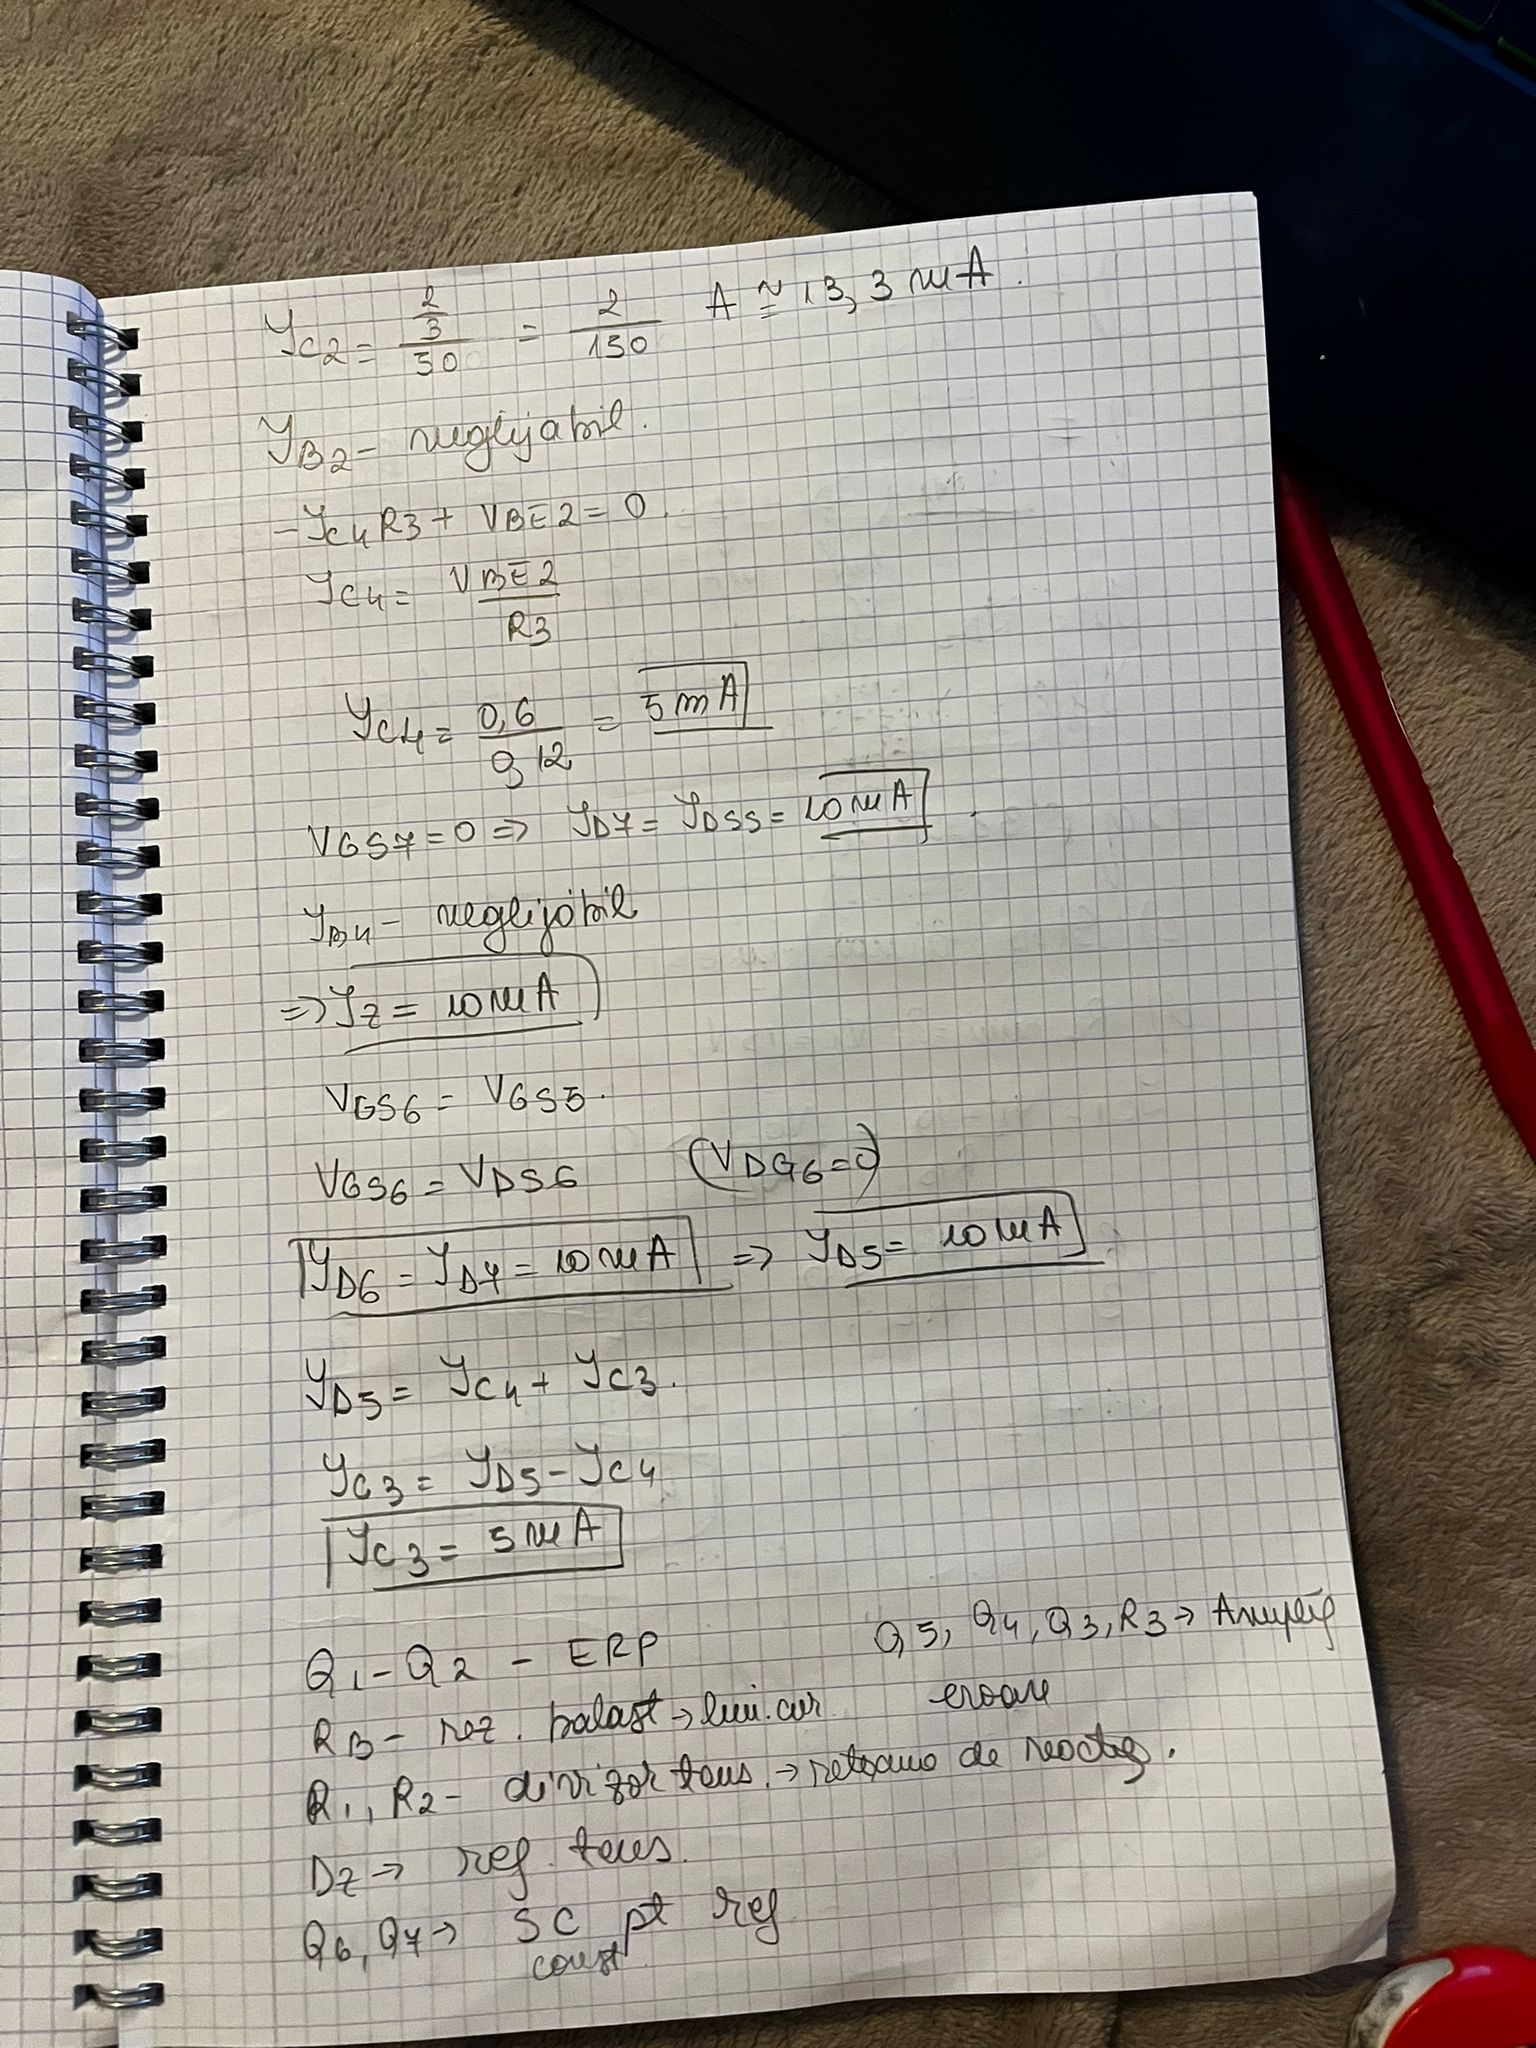 I_C2 = (2/3)/50 = 2/150 A ≅ 13,3 mA.
I_B2 - neglijabil.
-I_C4 R3 + V_BE2 = 0.
I_C4 = V_BE2/R3
I_C4 = 0,6/0,12 = 5 mA
V_GS7 = 0 => I_D7 = I_DSS = 10 mA.
I_B4 - neglijabil
=> I_Z = 10 mA
V_GS6 = V_GS5.
V_GS6 = V_DS6 (V_DG6 = 0)
I_D6 = I_D7 = 10 mA => I_D5 = 10 mA
I_D5 = I_C4 + I_C3.
I_C3 = I_D5 - I_C4
I_C3 = 5 mA
Q1 - Q2 - ERP
Q5, Q4, Q3, R3 → Amplif
eroare
RB - rez. balast → lim. cur
R1, R2 - divizor tens. → rețeaua de reacție.
DZ → ref. tens.
Q6, Q7 → SC pt ref
const